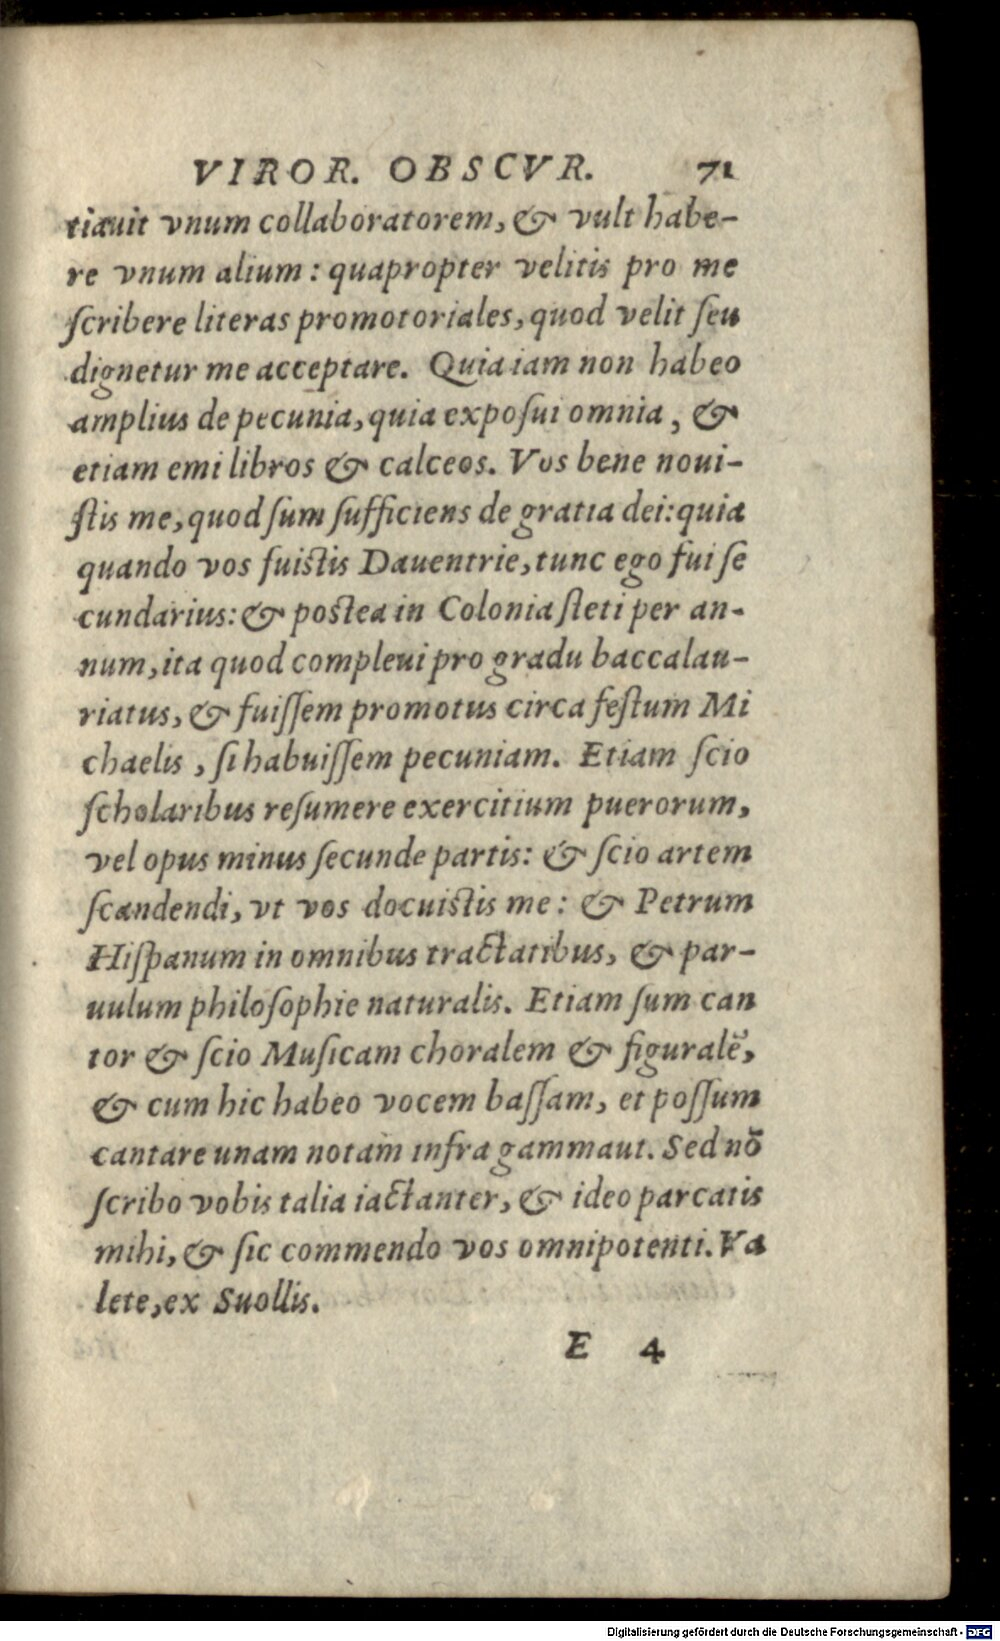 VIROR. OBSCVR. 71
tiauit vnum collaboratorem, & vult habe-
re vnum alium: quapropter velitis pro me
ſcribere literas promotoriales, quod velit ſeu
dignetur me acceptare. Quia iam non habeo
amplius de pecunia, quia expoſui omnia, &
etiam emi libros & calceos. Vos bene noui-
ſtis me, quod ſum ſufficiens de gratia dei: quia
quando vos fuiſtis Dauentrie, tunc ego fui ſe
cundarius: & poſtea in Colonia ſteti per an-
num, ita quod compleui pro gradu baccalau-
riatus, & fuiſſem promotus circa feſtum Mi
chaelis, ſi habuiſſem pecuniam. Etiam ſcio
ſcholaribus reſumere exercitium puerorum,
vel opus minus ſecunde partis: & ſcio artem
ſcandendi, vt vos docuiſtis me: & Petrum
Hiſpanum in omnibus tractatibus, & par-
uulum philoſophie naturalis. Etiam ſum can
tor & ſcio Muſicam choralem & figuralē,
& cum hic habeo vocem baſſam, et poſſum
cantare unam notam infra gammaut. Sed nō
ſcribo vobis talia iactanter, & ideo parcatis
mihi, & ſic commendo vos omnipotenti. Va
lete, ex Suollis.
E 4
Digitalisierung gefördert durch die Deutsche Forschungsgemeinschaft - DFG